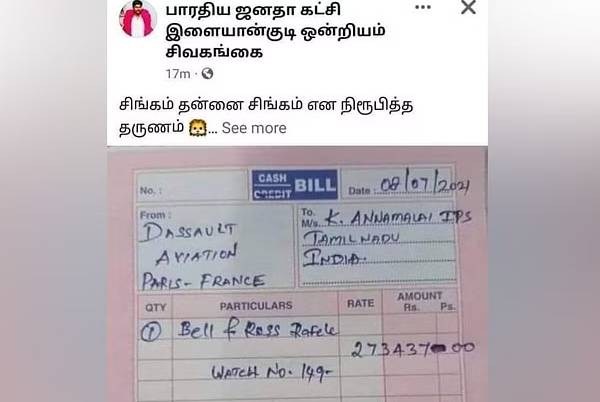 பாரதிய ஜனதா கட்சி
இளையான்குடி ஒன்றியம்
சிவகங்கை
17m ·
சிங்கம் தன்னை சிங்கம் என நிரூபித்த
தருணம் 🦁... See more
No. :
CASH
CREDIT
BILL
Date : 08/07/2021
From :
DASSAULT
AVIATION
PARIS - FRANCE
To.
M/s. K. ANNAMALAI IPS
TAMILNADU
INDIA.
QTY PARTICULARS RATE AMOUNT
Rs. Ps.
① Bell & Ross Rafele
273437-00
WATCH No. 149-